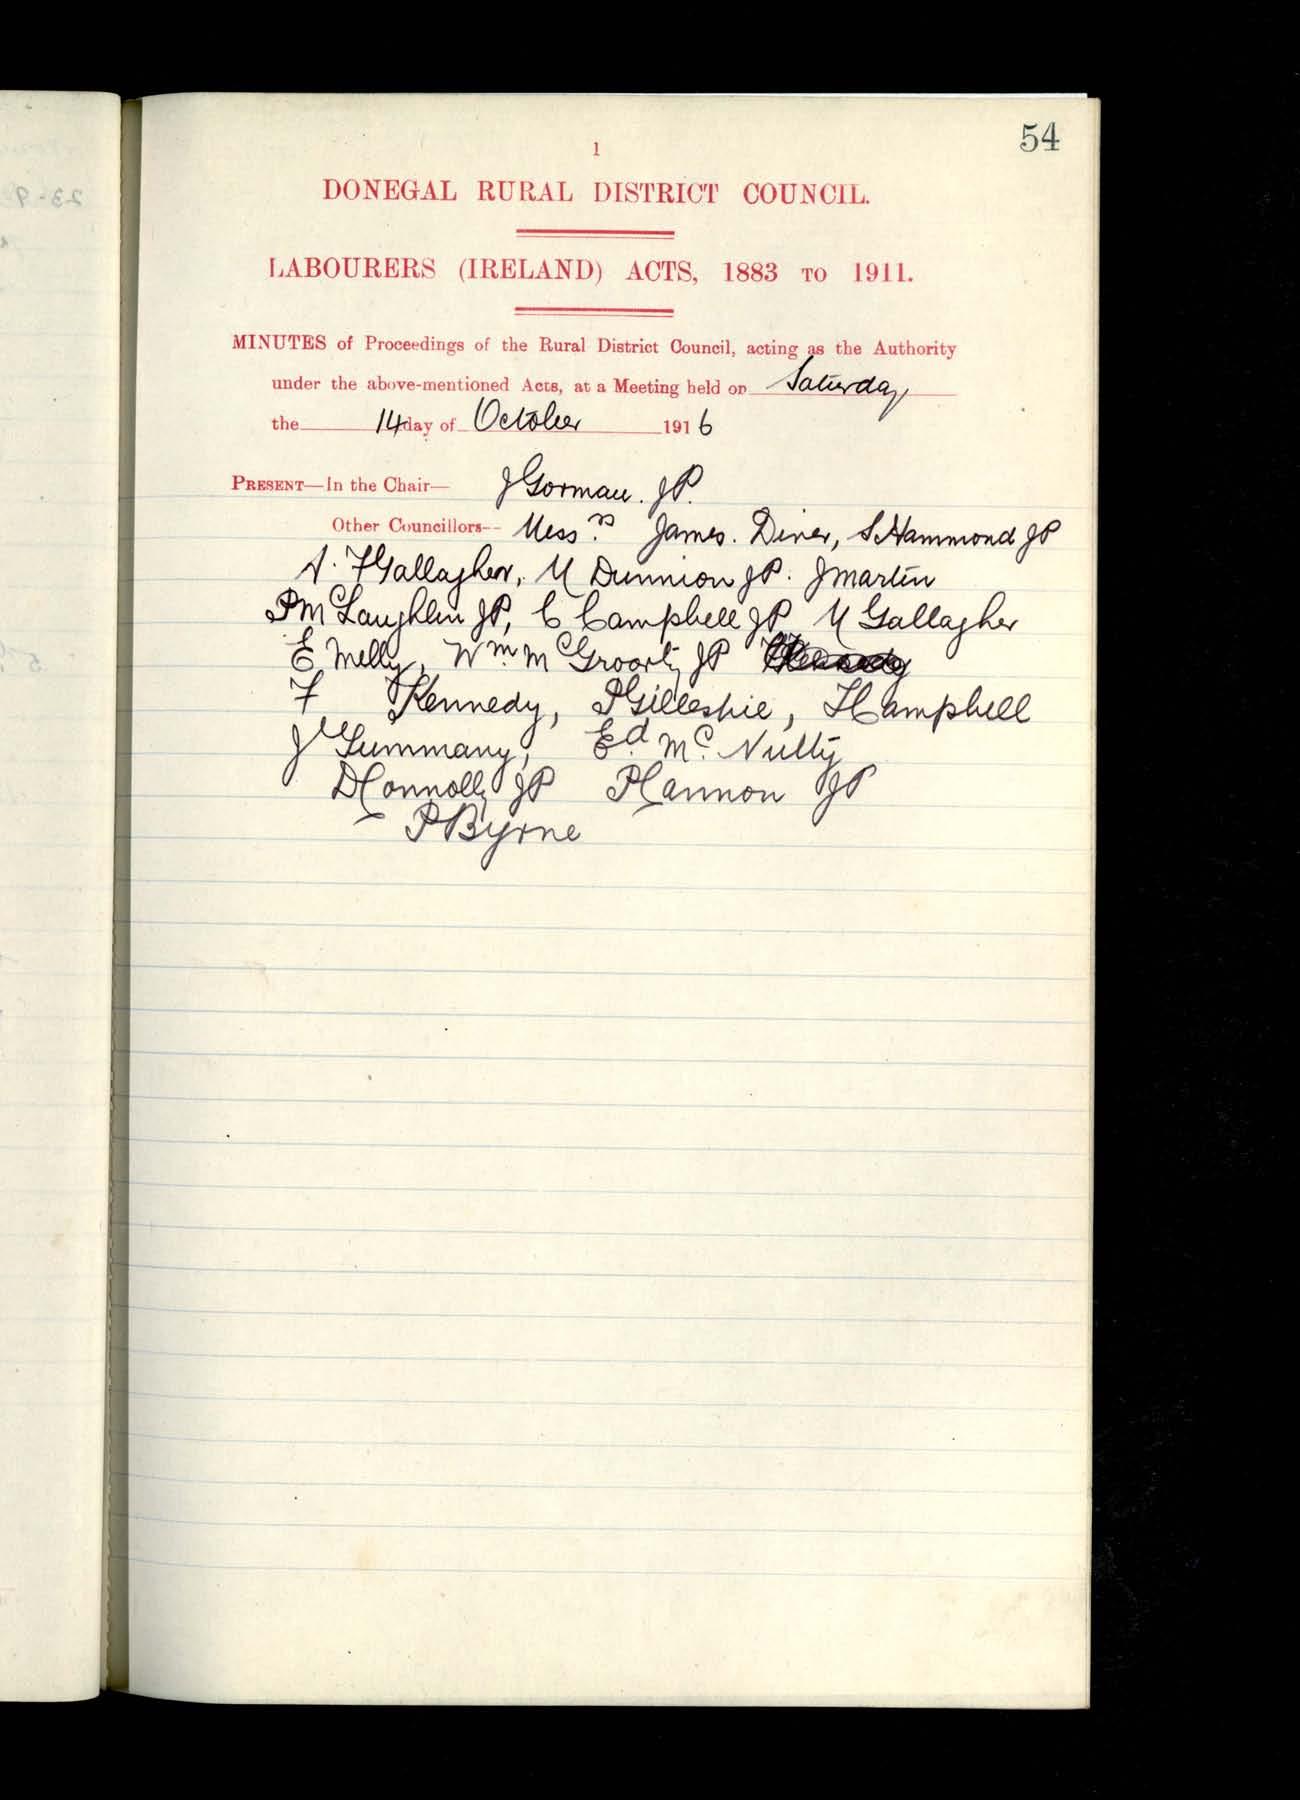 54
1
DONEGAL RURAL DISTRICT COUNCIL.
LABOURERS (IRELAND) ACTS, 1883 TO 1911.
MINUTES of Proceedings of the Rural District Council, acting as the Authority
under the above-mentioned Acts, at a Meeting held on Saturday
the 14 day of October 1916
PRESENT—In the Chair— J Gorman. JP.
Other Councillors-- Messrs James. Diver, S Hammond JP
A. F Gallagher, M Dunnion JP. J Martin
P McLaughlin JP, C Campbell JP M Gallagher
E Melly, Wm. McGroarty JP
F Kennedy, P Gillespie, F Campbell
J Timmany, Ed. Mc. Nulty
D Connolly JP P Cannon JP
P Byrne